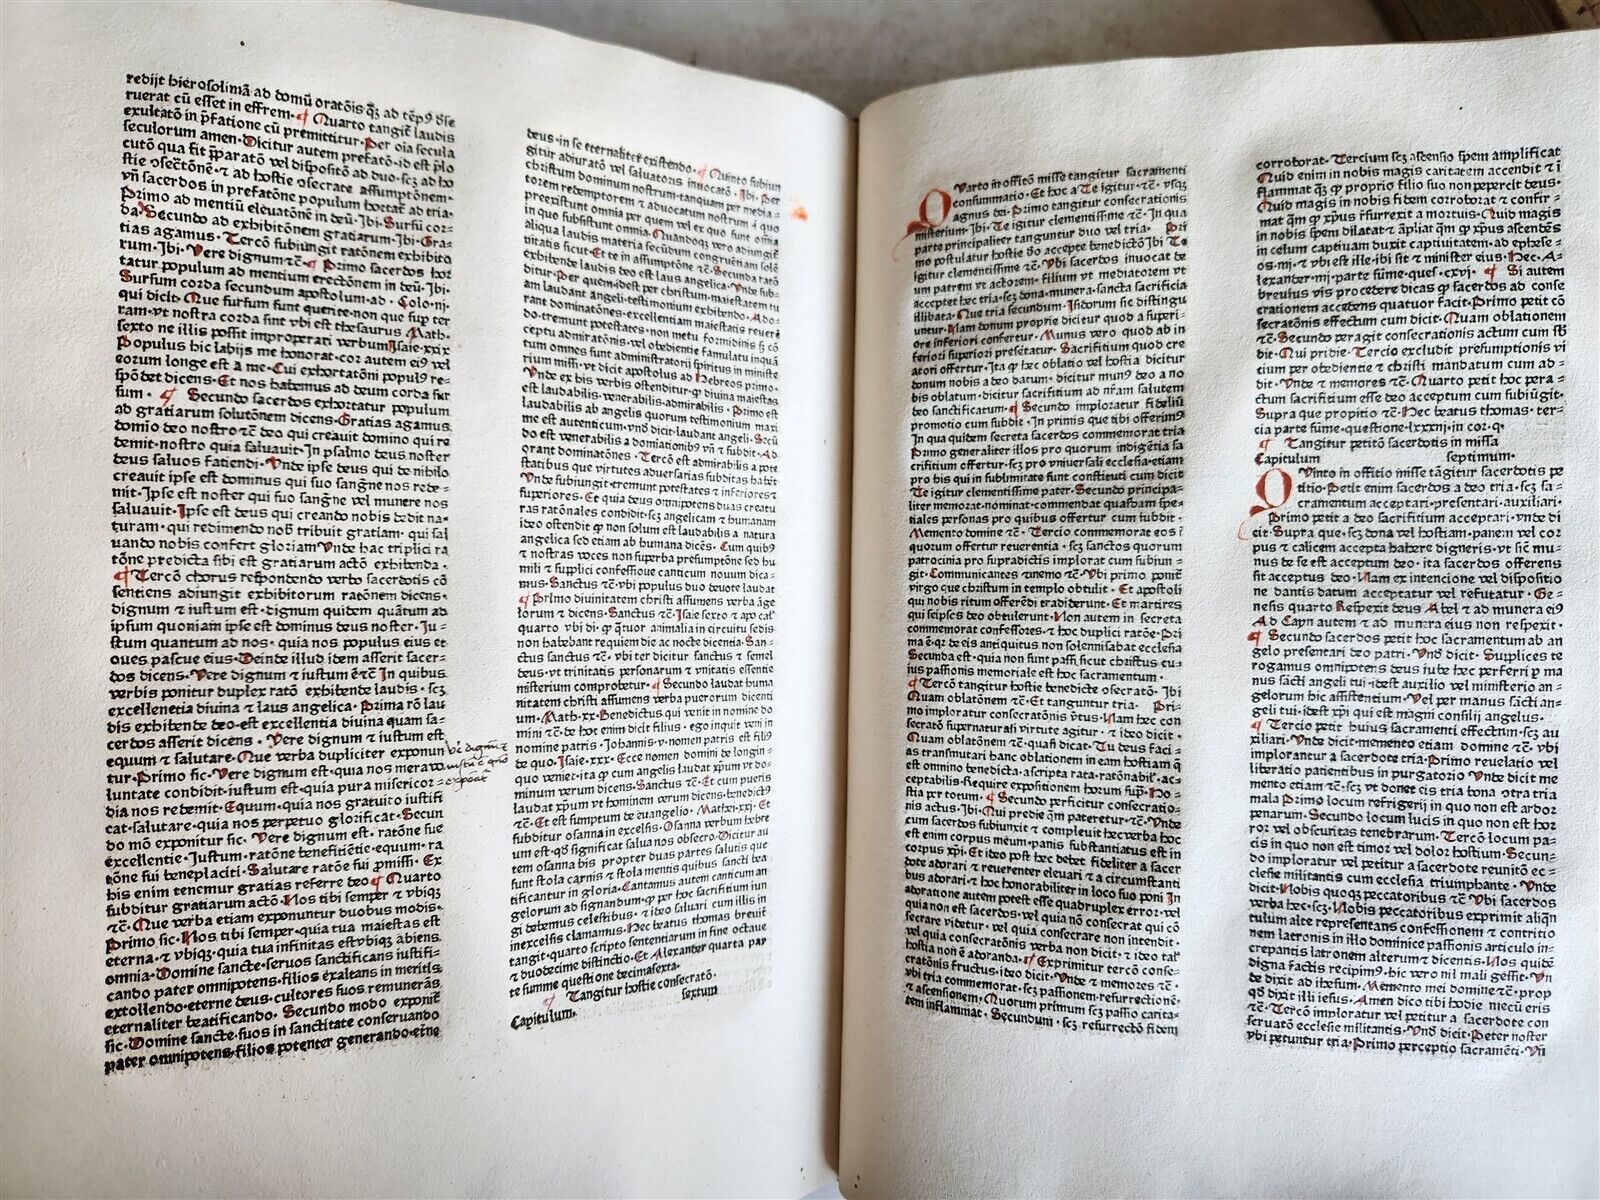 redijt hierosolimā ad domū oratōis qȝ ad tēpꝰ dese
ruerat cū esset in effrem. ¶ Quarto tangit̄ laudis
exultatō in p̄fatione cū premittitur. Per oīa secula
seculorum amen. Dicitur autem prefatō. id est p̄lo
cutō qua fit p̄paratō vel dispositō ad duo. scȝ ad ho
stie ɔsecrōnē. ⁊ ad hostie ɔsecrate assumptōnem.
Vn̄ sacerdos in prefatōne populum hortat̄ ad tria.
Primo ad mentiū eleuatōnē in deū. Ibi. Sursū cor-
da. Secundo ad exhibitōnem gratiarum. Ibi. Gra-
tias agamus. Tercō subiungit ratōnem exhibito
rum. Ibi. Vere dignum ⁊c̄. ¶ Primo sacerdos hor
tatur populum ad mentium erectōnem in deū. Ibi.
Sursum corda secundum apostolum. ad. Colo. iij.
qui dicit. Que sursum sunt querite. non que sup ter
ram. vt nostra corda sint vbi est thesaurus Math.
sexto ne illis possit improperari verbum Isaie. xxix
Populus hic labijs me honorat. cor autem eiꝰ vel
eorum longe est a me. Cui exhortatōni populꝰ re-
spōdet dicens. Et nos habemus ad deum corda sur
sum. ¶ Secundo sacerdos exhortatur populum
ad gratiarum solutōnem dicens. Gratias agamus
domīo deo nostro ⁊c̄ deo qui creauit domino qui re
demit. nostro quia saluauit. In psalmo deus noster
deus saluos faciendi. Vnde ipse deus qui de nihilo
creauit ipse est dominus qui suo sangīne nos rede-
mit. Ipse est noster qui suo sangīne vel munere nos
saluauit. Ipse est deus qui creando nobis dedit na-
turam. qui redimendo nob̄ tribuit gratiam. qui sal
uando nobis confert gloriam Vnde hac triplici ra
tōne predicta sibi est gratiarum actō exhibenda.
¶ Tercō chorus respondendo verbo sacerdotis cō
sentiens adiungit exhibitorum ratōnem dicens.
dignum ⁊ iustum est. dignum quidem quātum ad
ipsum quoniam ipse est dominus deus noster. Iu-
stum quantum ad nos. quia nos populus eius et
oues pascue eius. Deinde illud idem asserit sacer-
dos dicens. Vere dignum ⁊ iustum ē ⁊c̄ In quibus
verbis ponitur duplex ratō exhibende laudis. scȝ
excellentia diuina ⁊ laus angelica. Prima rō lau
dis exhibende deo. est excellentia diuina quam sa-
cerdos asserit dicens. Vere dignum ⁊ iustum
equum ⁊ salutare. Que verba dupliciter exponun
tur. Primo sic. Vere dignum est. quia nos mera vo
luntate condidit. iustum est. quia pura misericor-
dia nos redemit. Equum. quia nos gratuito iustifi
cat. salutare. quia nos perpetuo glorificat. Secun
do mō exponitur sic. Vere dignum est. ratōne sue
excellentie. Iustum. ratōne beneficētie. equum. ra
tōne sui beneplaciti. Salutare ratōe sui ꝓmissi. Ex
his enim tenemur gratias referre deo ¶ Quarto
subditur gratiarum actō. Nos tibi semper ⁊ vbiqȝ
⁊c̄. Que verba etiam exponuntur duobus modis.
Primo sic. Nos tibi semper. quia tua maiestas est
eterna. ⁊ vbiqȝ. quia tua infinitas est vbiqȝ ābiens
omnia. Domine sancte. seruos sanctificans iustifi-
cando pater omnipotens. filios exaltans in meritis
extollendo. eterne deus. cultores suos remunerās
eternaliter beatificando. Secundo modo exponit̄
sic. Domine sancte. suos in sanctitate conseruando
pater omnipotens. filios potenter generando. eterne
deus. in se eternaliter existendo. ¶ Quinto subiun
gitur adiuratō vel saluatoris inuocatō. Ibi. Per
christum dominum nostrum. tanquam per media-
torem redemptorem ⁊ aduocatum nostrum. a quo
preexistunt omnia per quem vel ex quo sunt omīa
in quo subsistunt omnia. Quandoqȝ vero adiungit̄
aliqua laudis materia secūdum congruētiam solē
nitatis sicut. Et te in assumptōne ⁊c̄. Secunda ratō
exhibende laudis deo est laus angelica. Vnde sub-
ditur. Per quem. idest per christum. maiestatem tu
am laudant angeli. testimonium exhibendo. Ado-
rant dominatōnes. excellentiam maiestatis reuerē
do. tremunt potestates. non metu formidinis sȝ cō
ceptu admiratōnis. vel obedientie famulatu inquā
tum omnes sunt administratorij spiritus in ministe
rium missi. vt dicit apostolus ad Hebreos primo.
Vnde ex his verbis ostenditur. ꝙ diuina maiestas
est laudabilis. venerabilis. admirabilis. Primo est
laudabilis ab angelis quorum testimonium maxi
me est autenticum. vn̄d dicit laudant angeli. Secū
do est venerabilis a domīationibꝰ vn̄ ⁊ subdit. Ad
orant dominatōnes. Tercō est admirabilis a pote
statibus que virtutes aduersarias subditas habēt
Vnde subiungit. tremunt potestates ⁊ inferiores ⁊
superiores. Et quia deus omnipotens duas creatu
ras ratōnales condidit. scȝ angelicam ⁊ humanam
ideo ostendit ꝙ non solum est laudabilis a natura
angelica sed etiam ab humana dicēs. Cum quibꝰ
⁊ nostras voces non superba presumptōne sed hu
mili ⁊ supplici confessione canticum nouum dica-
mus. Sanctus ⁊c̄. vbi populus duo deuote laudat
¶ Primo diuinitatem christi assumens verba āge
lorum ⁊ dicens. Sanctus ⁊c̄. Isaie sexto ⁊ apocal̄
quarto vbi dī. ꝙ q̄tuor animalia in circuitu sedis
non habebant requiem die ac nocte dicentia. San-
ctus sanctus ⁊c̄. vbi ter dicitur sanctus ⁊ semel
deus. vt trinitatis personarum ⁊ vnitatis essentie
misterium comprobetur. ¶ Secundo laudat huma
nitatem christi assumens verba puerorum dicenti
um. Math. xx. Benedictus qui venit in nomine do
mini ⁊c̄. de hoc enim dicit filius. ego inquit veni in
nomine patris. Iohannis. v. nomen patris est filiꝰ
de quo. Isaie. xxx. Ecce nomen domini de longin-
quo veniet. ita ꝙ cum angelis laudat xp̄um vt do-
minum verum dicens. Sanctus ⁊c̄. Et cum pueris
laudat xp̄um vt hominem verum dicens. benedictꝰ
⁊c̄. Et est sumptum de euangelio. Mathei. xxj. Et
subditur osanna in excelsis. Osanna verbum hebre
um est. qd̄ significat salua nos obsecro. Dicitur au
tem osanna bis propter duas partes salutis que
sunt stola carnis ⁊ stola mentis quibus sancti bea
tificantur in gloria. Cantamus autem canticum an
gelorum ad signandum. ꝙ per hoc sacrificium iun
gi debemus celestibus. ⁊ ideo saluari cum illis in
inexcelsis clamamus. Hec beatus thomas breuit̄
tangit. quarto scripto sententiarum in fine octaue
⁊ duodecime distinctio. Et Alexander quarta par
te summe questione decimasexta.
¶ Tangitur hostie consecratō.
Capitulum. sextum
Quarto in offitō misse tangitur sacramenti
consummatio. Et hoc a Te igitur. ⁊c̄. vsqȝ
agnus dei. Primo tangitur consecrationis
misterium. Ibi. Te igitur clementissime ⁊c̄. In qua
parte principaliter tanguntur duo vel tria. Pri
mo postulatur hostie dō accepte benedictō Ibi Te
igitur clementissime ⁊c̄. Vbi sacerdos inuocat de
um patrem vt actorem. filium vt mediatorem vt
acceptet hec tria. scȝ dona. munera. sancta sacrificia
illibata. Que tria secundum. Isidorum sic distingu
untur. Nam donum proprie dicitur quod a superi-
ore inferiori confertur. Munus vero quod ab in
feriori superiori presētatur. Sacrificium quod cre
atori offertur. Ita ꝙ hec oblatio vel hostia dicitur
donum nobis a deo datum. dicitur munꝰ deo a no
bis oblatum. dicitur sacrificium ad nr̄am salutem
deo sanctificatum. ¶ Secundo imploratur fideliū
promotio cum subdit. In primis que tibi offerimꝰ
In qua quidem secreta sacerdos commemorat tria
Primo generaliter illos pro quorum indigentia sa
crificium offertur. scȝ pro vniuersali ecclesia. etiam
pro his qui in sublimitate sunt constituti cum dicit
Te igitur clementissime pater. Secundo principa-
liter memorat. nominat. commendat quasdam spe-
tiales personas pro quibus offertur cum subdit.
Memento domine ⁊c̄. Tercio commemorat eos ī
quorum offertur reuerentia. scȝ sanctos quorum
patrocinia pro supradictis implorat cum subiun-
git. Communicantes ⁊ memo ⁊c̄. Vbi primo ponit̄
virgo que christum in templo obtulit. Et apostoli
qui nobis ritum offerēdi tradiderunt. Et martires
qui seipsos deo obtulerunt. Non autem in secreta
commemorat confessores. ⁊ hoc duplici ratōe. Pri
ma ē. qꝛ de eis antiquitus non solemnisabat ecclesia
Secunda est. quia non sunt passi. sicut christus cu-
ius passionis memoriale est hoc sacramentum.
¶ Tercō tangitur hostie benedicte ɔsecratō. Ibi
Quam oblatōnem ⁊c̄. Et tanguntur tria. Pri-
mo imploratur consecratōnis v̄tus. Nam hec con
secratō supernaturali virtute agitur. ⁊ ideo dicit.
Quam oblatōnem ⁊c̄. quasi dicat. Tu deus faci-
as transmutari hanc oblationem in eam hostiam q̄
est omnino benedicta. ascripta rata. ratōnabil̄. ac-
ceptabilis. Require expositionem horum sup. Ho-
stia per totum. ¶ Secundo perficitur consecratio-
nis actus. Ibi. Qui pridie q̄m pateretur. ⁊c̄. Vnde
cum sacerdos subiunxit ⁊ compleuit hec verba hoc
est enim corpus meum. panis substantiatus est in
corpus xp̄i. Et ideo post hec debet fideliter a sacer
dote adorari ⁊ reuerenter eleuari ⁊ a circumstanti
bus adorari. ⁊ hoc honorabiliter in loco suo poni In
adoratione autem potest esse quadruplex error. vel
quia non est sacerdos. vel quia nō consecrat qui cō
secrare videtur. vel quia consecrare non intendit.
vel quia consecratōnis verba non dicit. ⁊ ideo tal̄
hostia non ē adoranda. ¶ Exprimitur tercō conse-
cratōnis fructus. ideo dicit. Vnde ⁊ memores ⁊c̄.
vbi tria commemorat. scȝ passionem. resurrectionē.
⁊ ascensionem. Quorum primum scȝ passio carita-
tem inflammat. Secundum. scȝ. resurrectō fidem
corroborat. Tercium scȝ ascensio spem amplificat
Quid enim in nobis magis caritatem accendit ⁊ ī
flammat qȝ. ꝙ proprio filio suo non pepercit deus.
Quid magis in nobis fidem corroborat ⁊ confir-
mat q̄m ꝙ xp̄us resurrexit a mortuis. Quid magis
in nobis spem dilatat ⁊ āpliat q̄m ꝙ xp̄us ascendēs
in celum captiuam duxit captiuitatem. ad ephese-
os. iiij. ⁊ vbi est ille. ibi sit ⁊ minister eius. Hec. A-
lexander. iiij. parte sūme. ques. cxvj. ¶ Si autem
breuius vis procedere dicas ꝙ sacerdos ad conse
crationem accedens quatuor facit. Primo petit cō
secratōnis effectum cum dicit. Quam oblationem
⁊c̄. Secundo peragit consecrationis actum cum sb̄
dit. Qui pridie. Tercio excludit presumptionis vi
tium per obedientie ⁊ christi mandatum cum ad-
dit. Vnde ⁊ memores ⁊c̄. Quarto petit hoc pera-
ctum sacrificium esse deo acceptum cum subiūgit.
Supra que propitio ⁊c̄. Hec beatus thomas. ter-
cia parte sūme. questione. lxxxiij. in cor. q.
¶ Tangitur petitō sacerdotis in missa
Capitulum septimum.
Quinto in offitio misse tāgitur sacerdotis pe
titio. Petit enim sacerdos a deo tria. scȝ sa-
cramentum acceptari. presentari. auxiliari.
Primo petit a deo sacrifitium acceptari. vnde di
cit. Supra que. scȝ dona vel hostiam. panem vel cor
pus ⁊ calicem accepta habere digneris. vt sic̄ mu-
nus de se est acceptum deo. ita sacerdos offerens
fit acceptus deo. Nam ex intencione vel dispositio
ne dantis datum acceptatur vel refutatur. Ge-
nesis quarto Respexit deus Abel ⁊ ad munera eiꝰ
Ad Cayn autem ⁊ ad munera eius non respexit.
¶ Secundo sacerdos petit hoc sacramentum ab an
gelo presentari deo patri. Vn̄d dicit. Supplices te
rogamus omnipotens deus iube hec perferri ꝑ ma
nus sācti angeli tui. idest auxilio vel ministerio an-
gelorum hic assistentium. Vel per manus sācti an-
geli tui. idest xp̄i qui est magni consilij angelus.
¶ Tercio petit huius sacramenti effectum. scȝ au
xiliari. Vnde dicit. memento etiam domine ⁊c̄. vbi
imploratur a sacerdote tria. Primo reuelatio vel
liberatio patientibus in purgatorio Vnde dicit me
mento etiam ⁊c̄. scȝ vt donet eis tria bona ɔtra tria
mala Primo locum refrigerij in quo non est ardor
penarum. Secundo locum lucis in quo non est hor
ror vel obscuritas tenebrarum. Tercō locum pa-
cis in quo non est timor vel dolor hostium. Secun-
do imploratur vel petitur a sacerdote reunitō ec-
clesie militantis cum ecclesia triumphante. Vnde
dicit. Nobis quoqȝ peccatoribus ⁊c̄. Vbi sacerdos
verba hec. scȝ. Nobis peccatoribus exprimit aliqn̄
tulum alte representans confessionem ⁊ contritio
nem latronis in illo dominice passionis articulo in-
crepantis latronem alterum ⁊ dicentis. Nos quidē
digna factis recipimꝰ. hic vero nil mali gessit. Vn
de dixit ad ihesum. Memento mei domine ⁊c̄. prop
qd̄ dixit illi iesus. Amen dico tibi hodie mecū eris
⁊c̄. Tercō imploratur vel petitur a sacerdote con
seruatō ecclesie militantis. Vn̄d dicit. Peter noster
vbi petuntur tria. Primo perceptio sacramēti. Vn̄